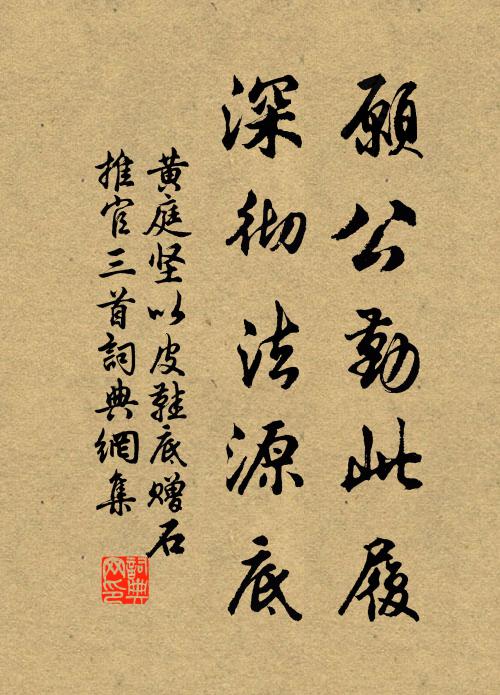 願公勤此履
深彻法源底
黄庭坚以皮鞋底赠石
推官三首詞典網集
詞典网印